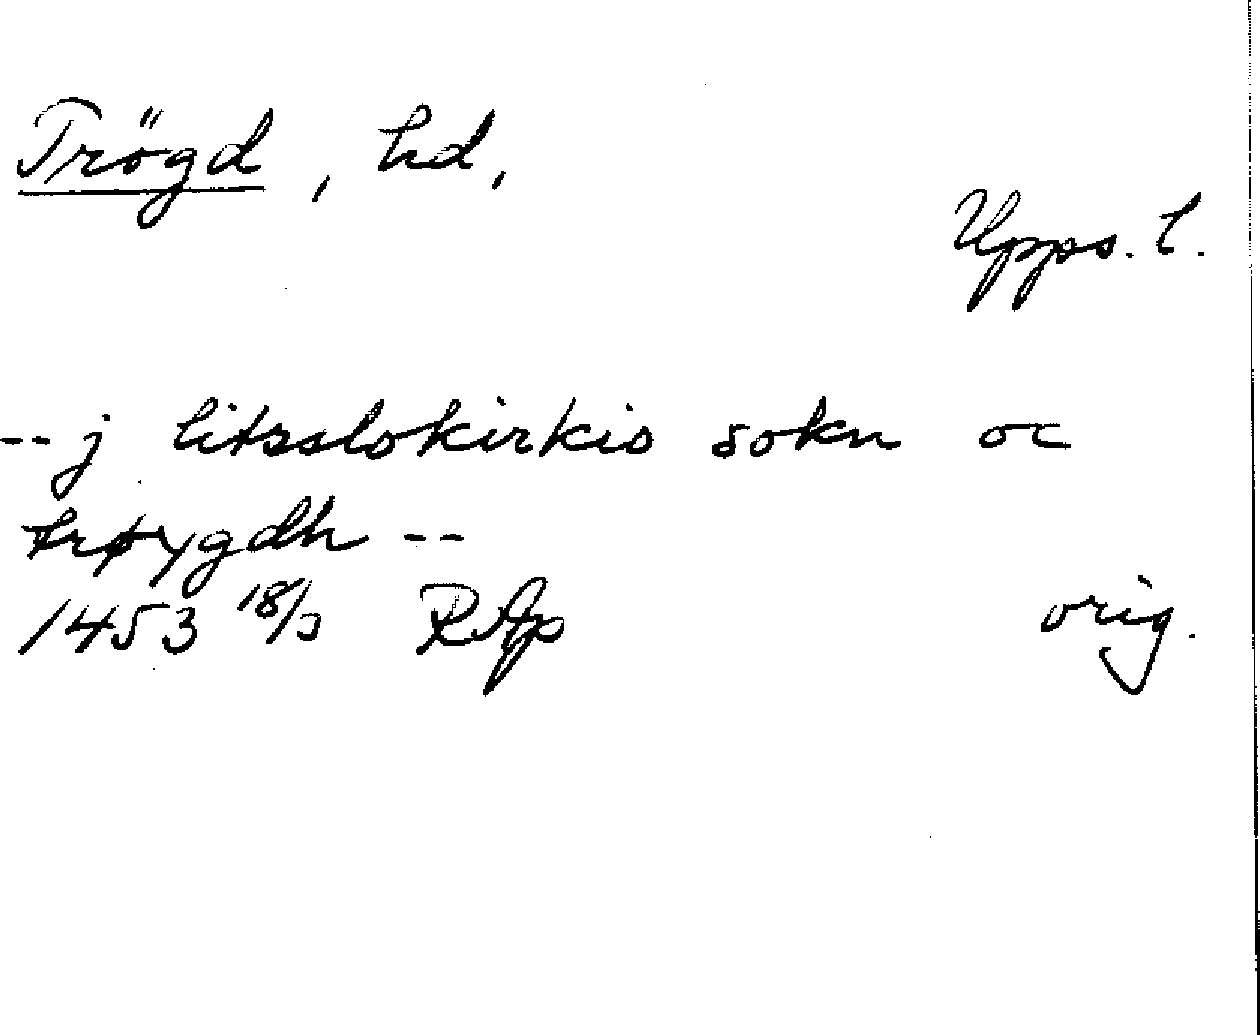 Trögd, hd,
Upps. l.
-- j litsslokirkis sokn oc
trøygdh --
1453 18/3 RAp orig.